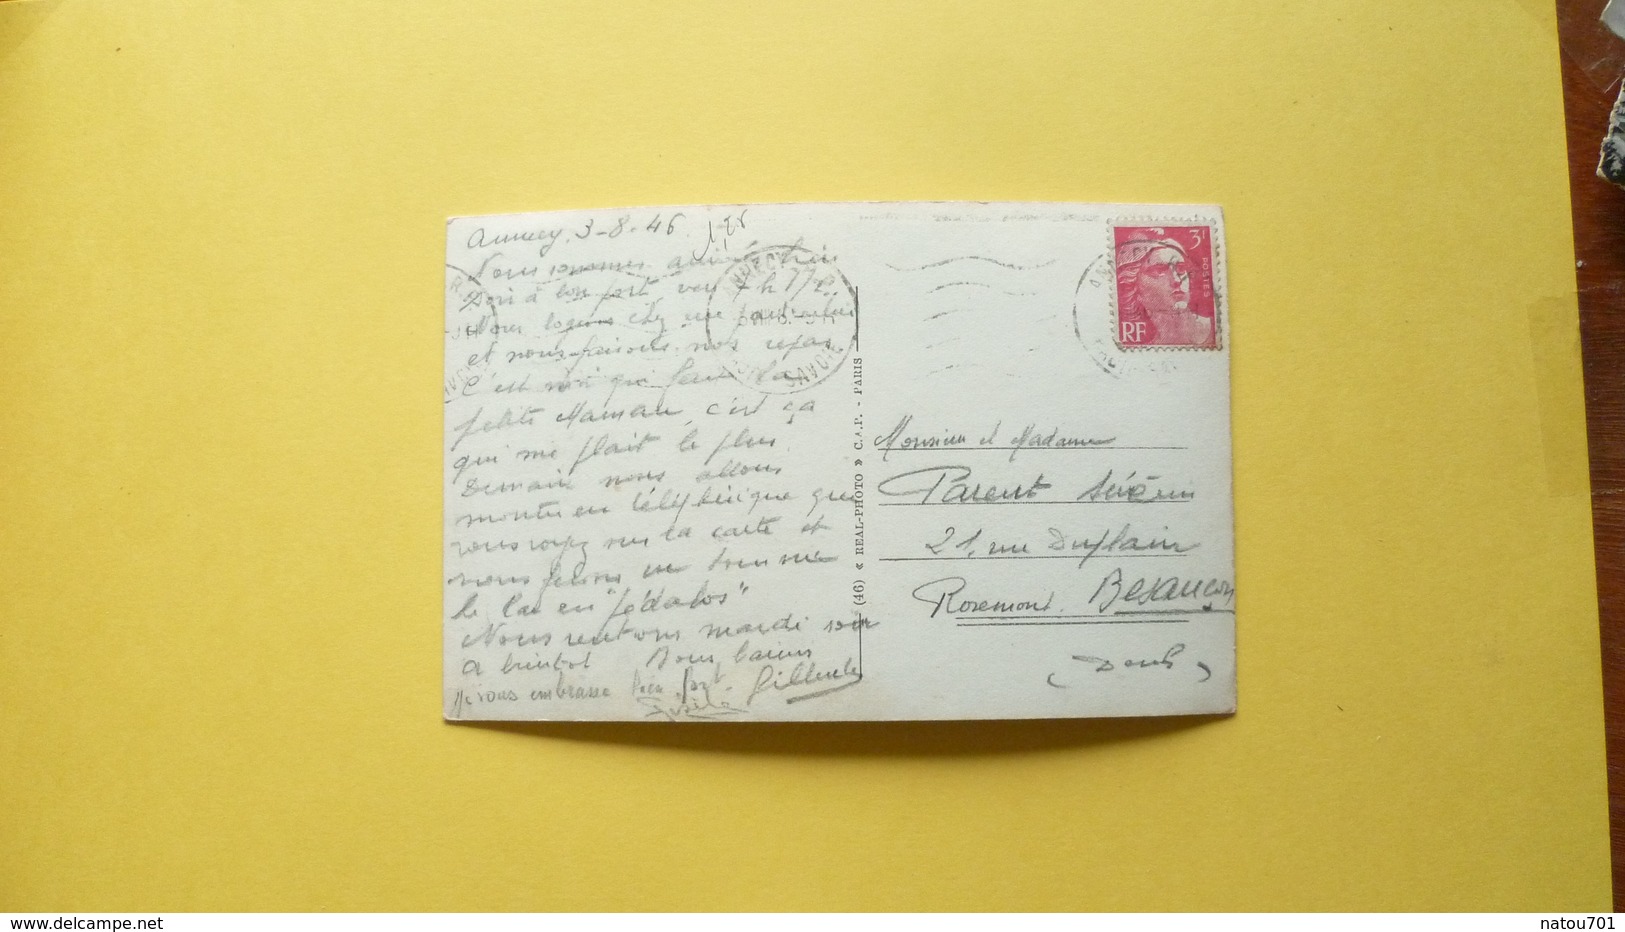 Annecy. 3-8-46
Nous sommes arrivés hier
soir à bon port vers 7h 1/2.
Nous logeons chez une particulière
et nous faisons nos repas
C'est moi qui fais la
petite Maman, c'est ça
qui me plait le plus.
Demain nous allons
monter en téléphérique que
vous voyez sur la carte et
nous ferons un tour sur
le lac en "pédalos"
Nous rentrons mardi soir
A bientôt Bons baisers
Je vous embrasse bien fort. Gilberte
Gisèle
(46) « REAL-PHOTO » C.A.P. - PARIS
3F
POSTES
RF
Monsieur et Madame
Parent Séverin
21, rue Duplain
Rosemont. Besançon
(Doubs)
delcampe.net
natou701